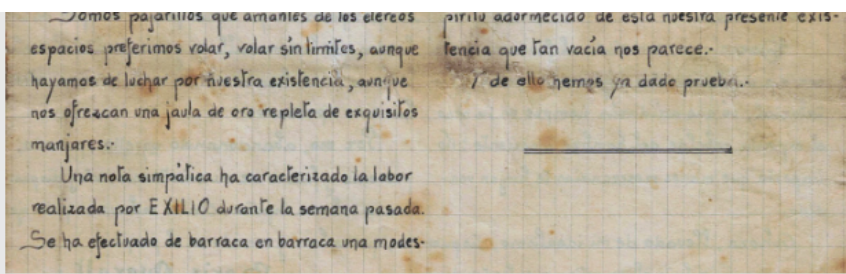 Somos pajarillos que amantes de los etereos
espacios preferimos volar, volar sin limites, aunque
hayamos de luchar por nuestra existencia, aunque
nos ofrezcan una jaula de oro repleta de exquisitos
manjares.-
Una nota simpática ha caracterizado la labor
realizada por EXILIO durante la semana pasada.
Se ha efectuado de barraca en barraca una modes-
píritu adormecido de esta nuestra presente exis-
tencia que tan vacía nos parece.-
Y de ello hemos ya dado prueba.-